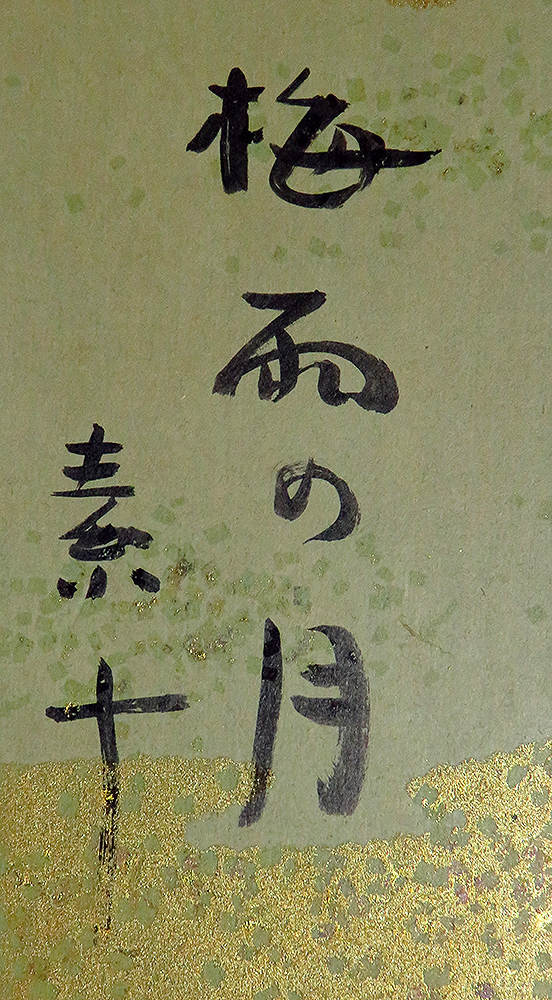 梅雨の月
素十